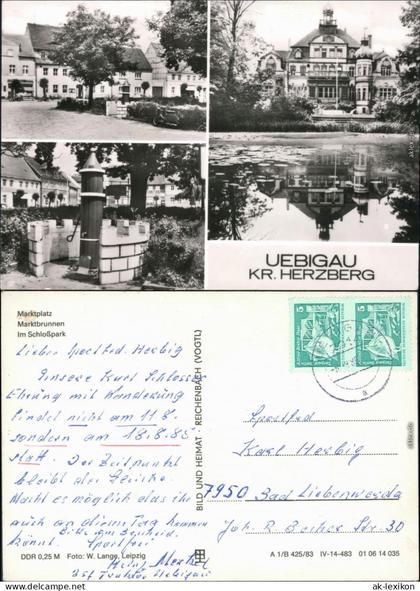 UEBIGAU
KR. HERZBERG
Marktplatz
Marktbrunnen
Im Schloßpark
Lieber Sportfrd. Herbig
Unsere Karl Schlosser
Ehrung mit Wanderung
findet nicht am 11.8.
sondern am 18.8.85
statt. Der Zeitpunkt
bleibt der Gleiche.
Macht es möglich das ihr
auch an diesem Tag kommen
könnt. Bitte um Bescheid.
Sportfrei
Heinz
DDR 0,25 M Foto: W. Lange, Leipzig
BILD UND HEIMAT REICHENBACH (VOGTL)
5
5
Sportfrd
Karl Herbig
7950 Bad Liebenwerda
Joh. R. Becher Str. 30
A 1/B 425/83 IV-14-483 01 06 14 035
www.ansichtskarten-lexikon.de - ak-lexikon.de